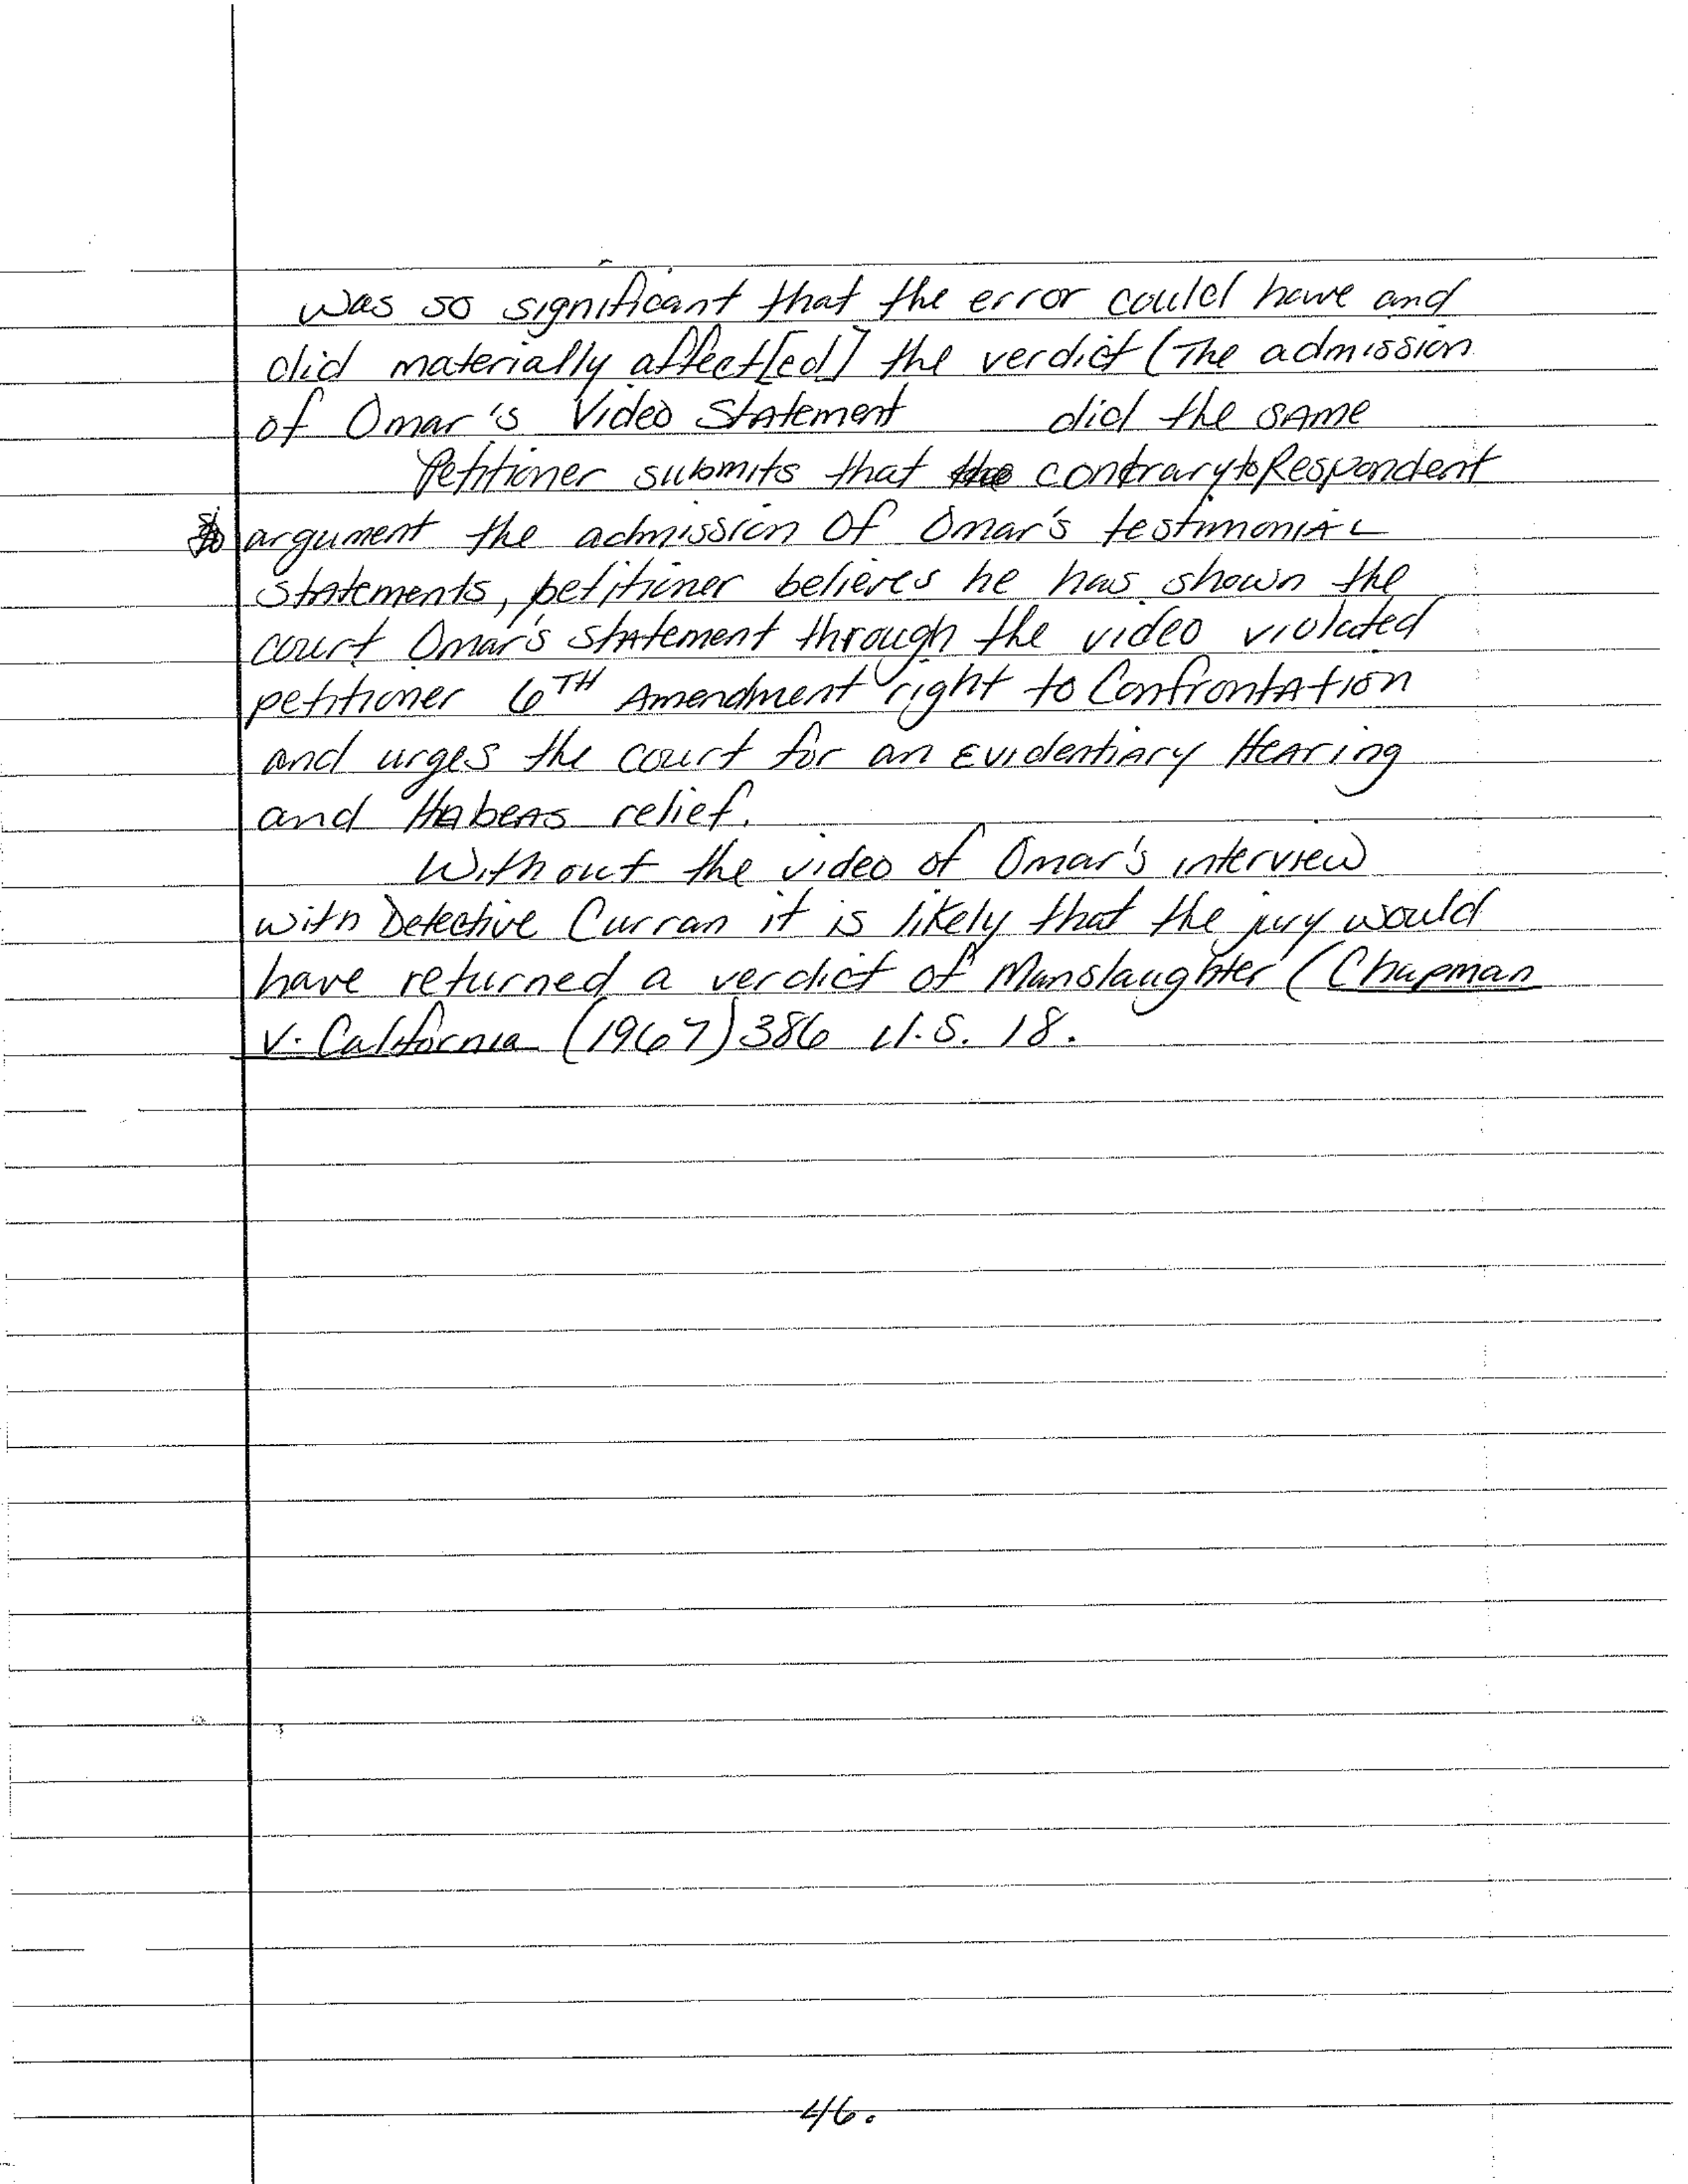 was so significant that the error could have and
did materially affect[ed] the verdict (The admission
of Omar's Video Statement did the SAME
Petitioner submits that the contrary to Respondent
argument the admission Of Omar's testimoniAL
statements, petitioner believes he has shown the
court Omar's statement through the video violated
petitioner 6TH Amendment right to Confrontation
and urges the court for an Evidentiary Hearing
and Habeas relief.
Without the video of Omar's interview
with Detective Curran it is likely that the jury would
have returned a verdict of Manslaughter (Chapman
v. California (1967) 386 U.S. 18.
46.